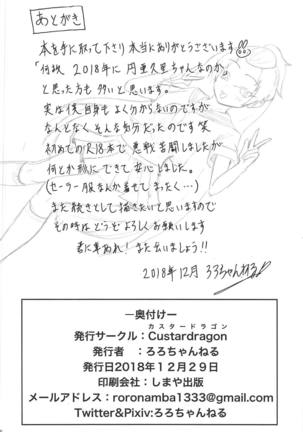 あとがき
本を手に取って下さり本当にありがとうございます
「何故 2018年に円亜久里ちゃんなのか」
と思った方も多いと思います。
実は僕自身もよく分からないのですが
なんとなくそんな気分だったのです笑
初めてのR18本で悪戦苦闘しましたが
何とか形にできて安心しました。
(セーラー服なんか着せてまったく…)
また続きとして描きたいと思いますので
その時はどうぞよろしくお願いします
君に幸あれ！また出いましょう!!
2018年12月 ろろちゃんねる
ー奥付けー
カスタードラゴン
発行サークル：Custardragon
発行者 ：ろろちゃんねる
発行日2018年12月29日
印刷会社：しまや出版
メールアドレス：roronamba1333@gmail.com
Twitter&Pixiv:ろろちゃんねる